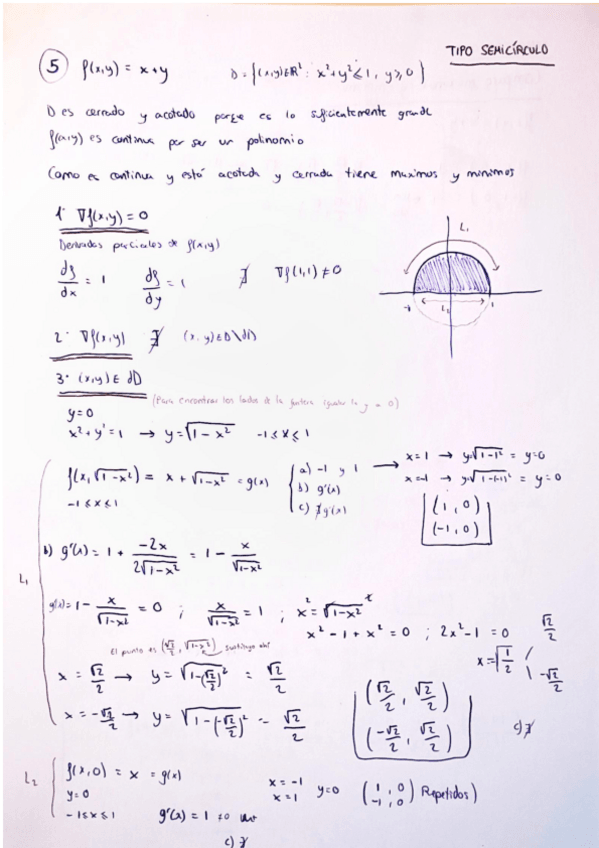 TIPO SEMICÍRCULO
5 f(x,y) = x+y D = {(x,y)∈ℝ² : x²+y²≤1, y≥0}
D es cerrado y acotado porque es lo suficientemente grande
f(x,y) es continua por ser un polinomio
Como es continua y está acotada y cerrada tiene maximos y minimos
1· ∇f(x,y) = 0
Derivadas parciales de f(x,y)
df/dx = 1 df/dy = 1 ∄ ∇f(1,1) ≠ 0
L₁
L₂
-1 1
2· ∇f(x,y) ∄ (x,y)∈D\dD
3· (x,y)∈ dD
(Para encontrar los lados de la frontera igualar la y = 0)
y=0
x²+y²=1 → y=√(1-x²) -1≤x≤1
f(x,√(1-x²)) = x + √(1-x²) = g(x)
-1≤x≤1
a) -1 y 1
b) g'(x)
c) ∄g'(x)
x=1 → y=√(1-1²) = y=0
x=-1 → y=√(1-(-1)²) = y=0
(1,0)
(-1,0)
L₁
b) g'(x) = 1 + -2x/(2√(1-x²)) = 1 - x/√(1-x²)
g'(x) = 1 - x/√(1-x²) = 0 ; x/√(1-x²) = 1 ; x² = √(1-x²)²
x² - 1 + x² = 0 ; 2x² - 1 = 0
x = √(1/2) √2/2 -√2/2
El punto es (√2/2, √(1-x²)) sustituyo ahí
x = √2/2 → y = √(1-(√2/2)²) = √2/2
x = -√2/2 → y = √(1-(-√2/2)²) = √2/2
(√2/2, √2/2)
(-√2/2, √2/2)
c) ∄
L₂
f(x,0) = x = g(x)
y=0
-1≤x≤1
g'(x) = 1 ≠ 0
x = -1
x = 1
y=0
(1,0
-1,0) Repetidos)
c) ∄